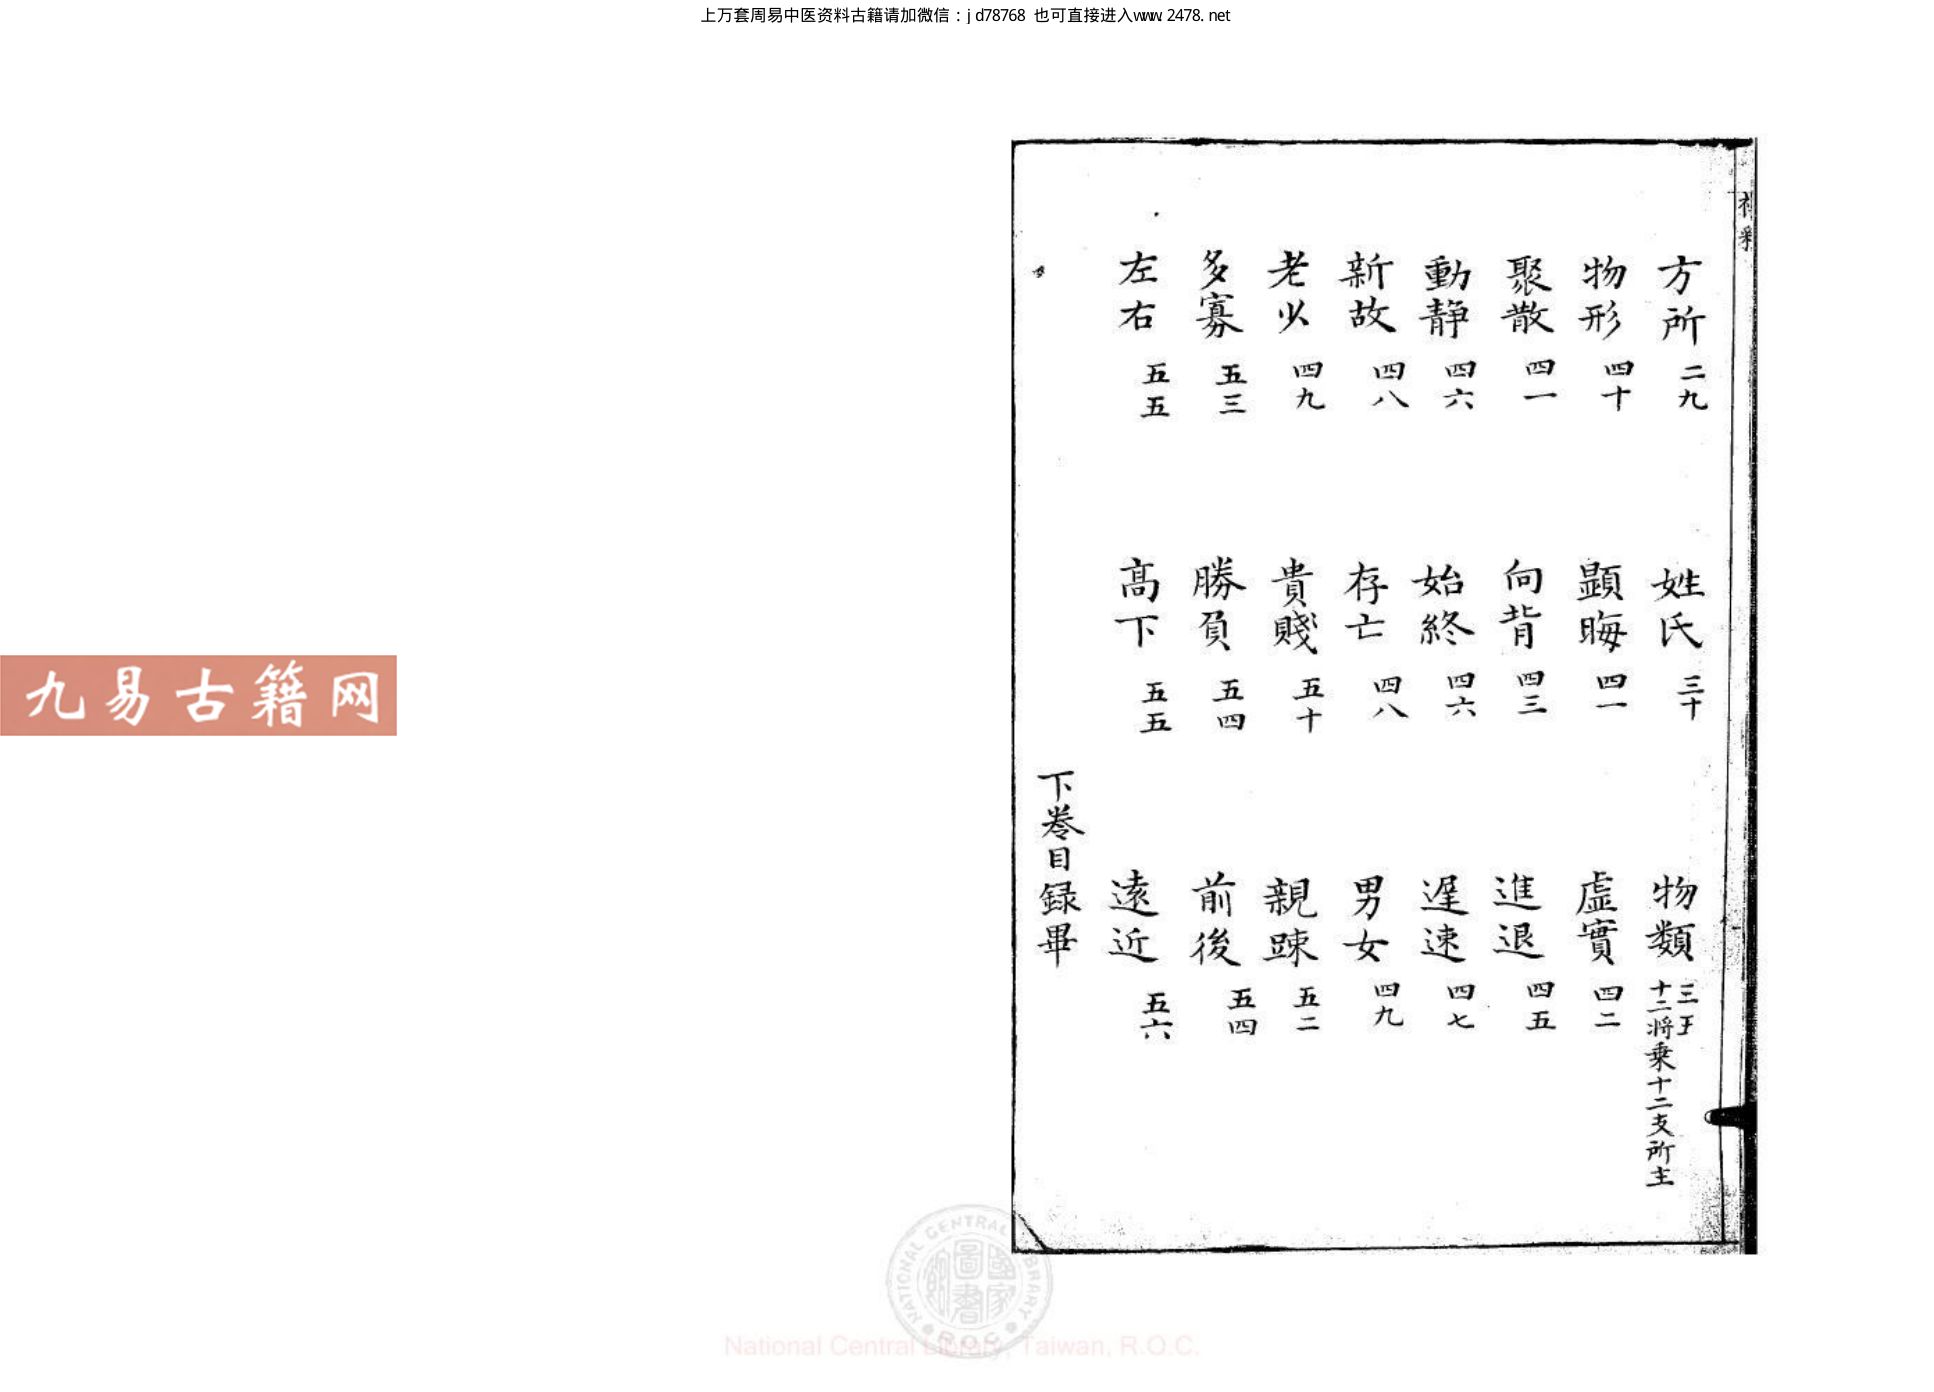 上万套周易中医资料古籍请加微信：jd78768 也可直接进入www.2478.net
方所 二九 姓氏 三十 物類 三王 十二將乗十二支所主
物形 四十 顕晦 四一 虛實 四二
聚散 四一 向背 四三 進退 四五
動静 四六 始終 四六 遅速 四七
新故 四八 存亡 四八 男女 四九
老少 四九 貴賤 五十 親踈 五二
多寡 五三 勝負 五四 前後 五四
左右 五五 髙下 五五 遠近 五六
下巻目録畢
九易古籍网
NATIONAL CENTRAL LIBRARY R.O.C.
國家圖書館
National Central Library, Taiwan, R.O.C.